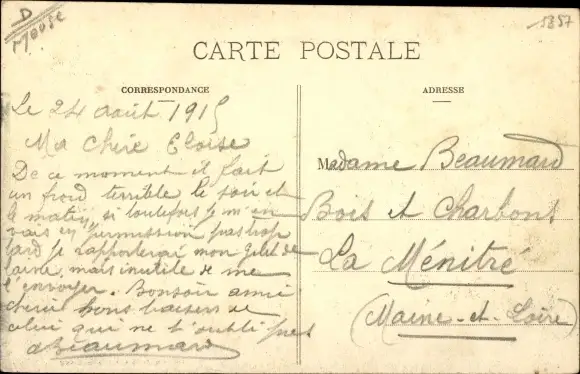 D
Meuse
5357
CARTE POSTALE
CORRESPONDANCE
Le 24 août 1915
Ma chère Eloïse
De ce moment il fait
un froid terrible le soir et
le matin, si toutefois je m'en
vais en permission pas trop
tard je rapporterai mon gilet de
laine, mais inutile de me
l'envoyer. Bonsoir amie
chérie bons baisers de
celui qui ne t'oublie pas
Beaumard
ADRESSE
Madame Beaumard
Bois et Charbons
La Ménitré
(Maine-et-Loire)